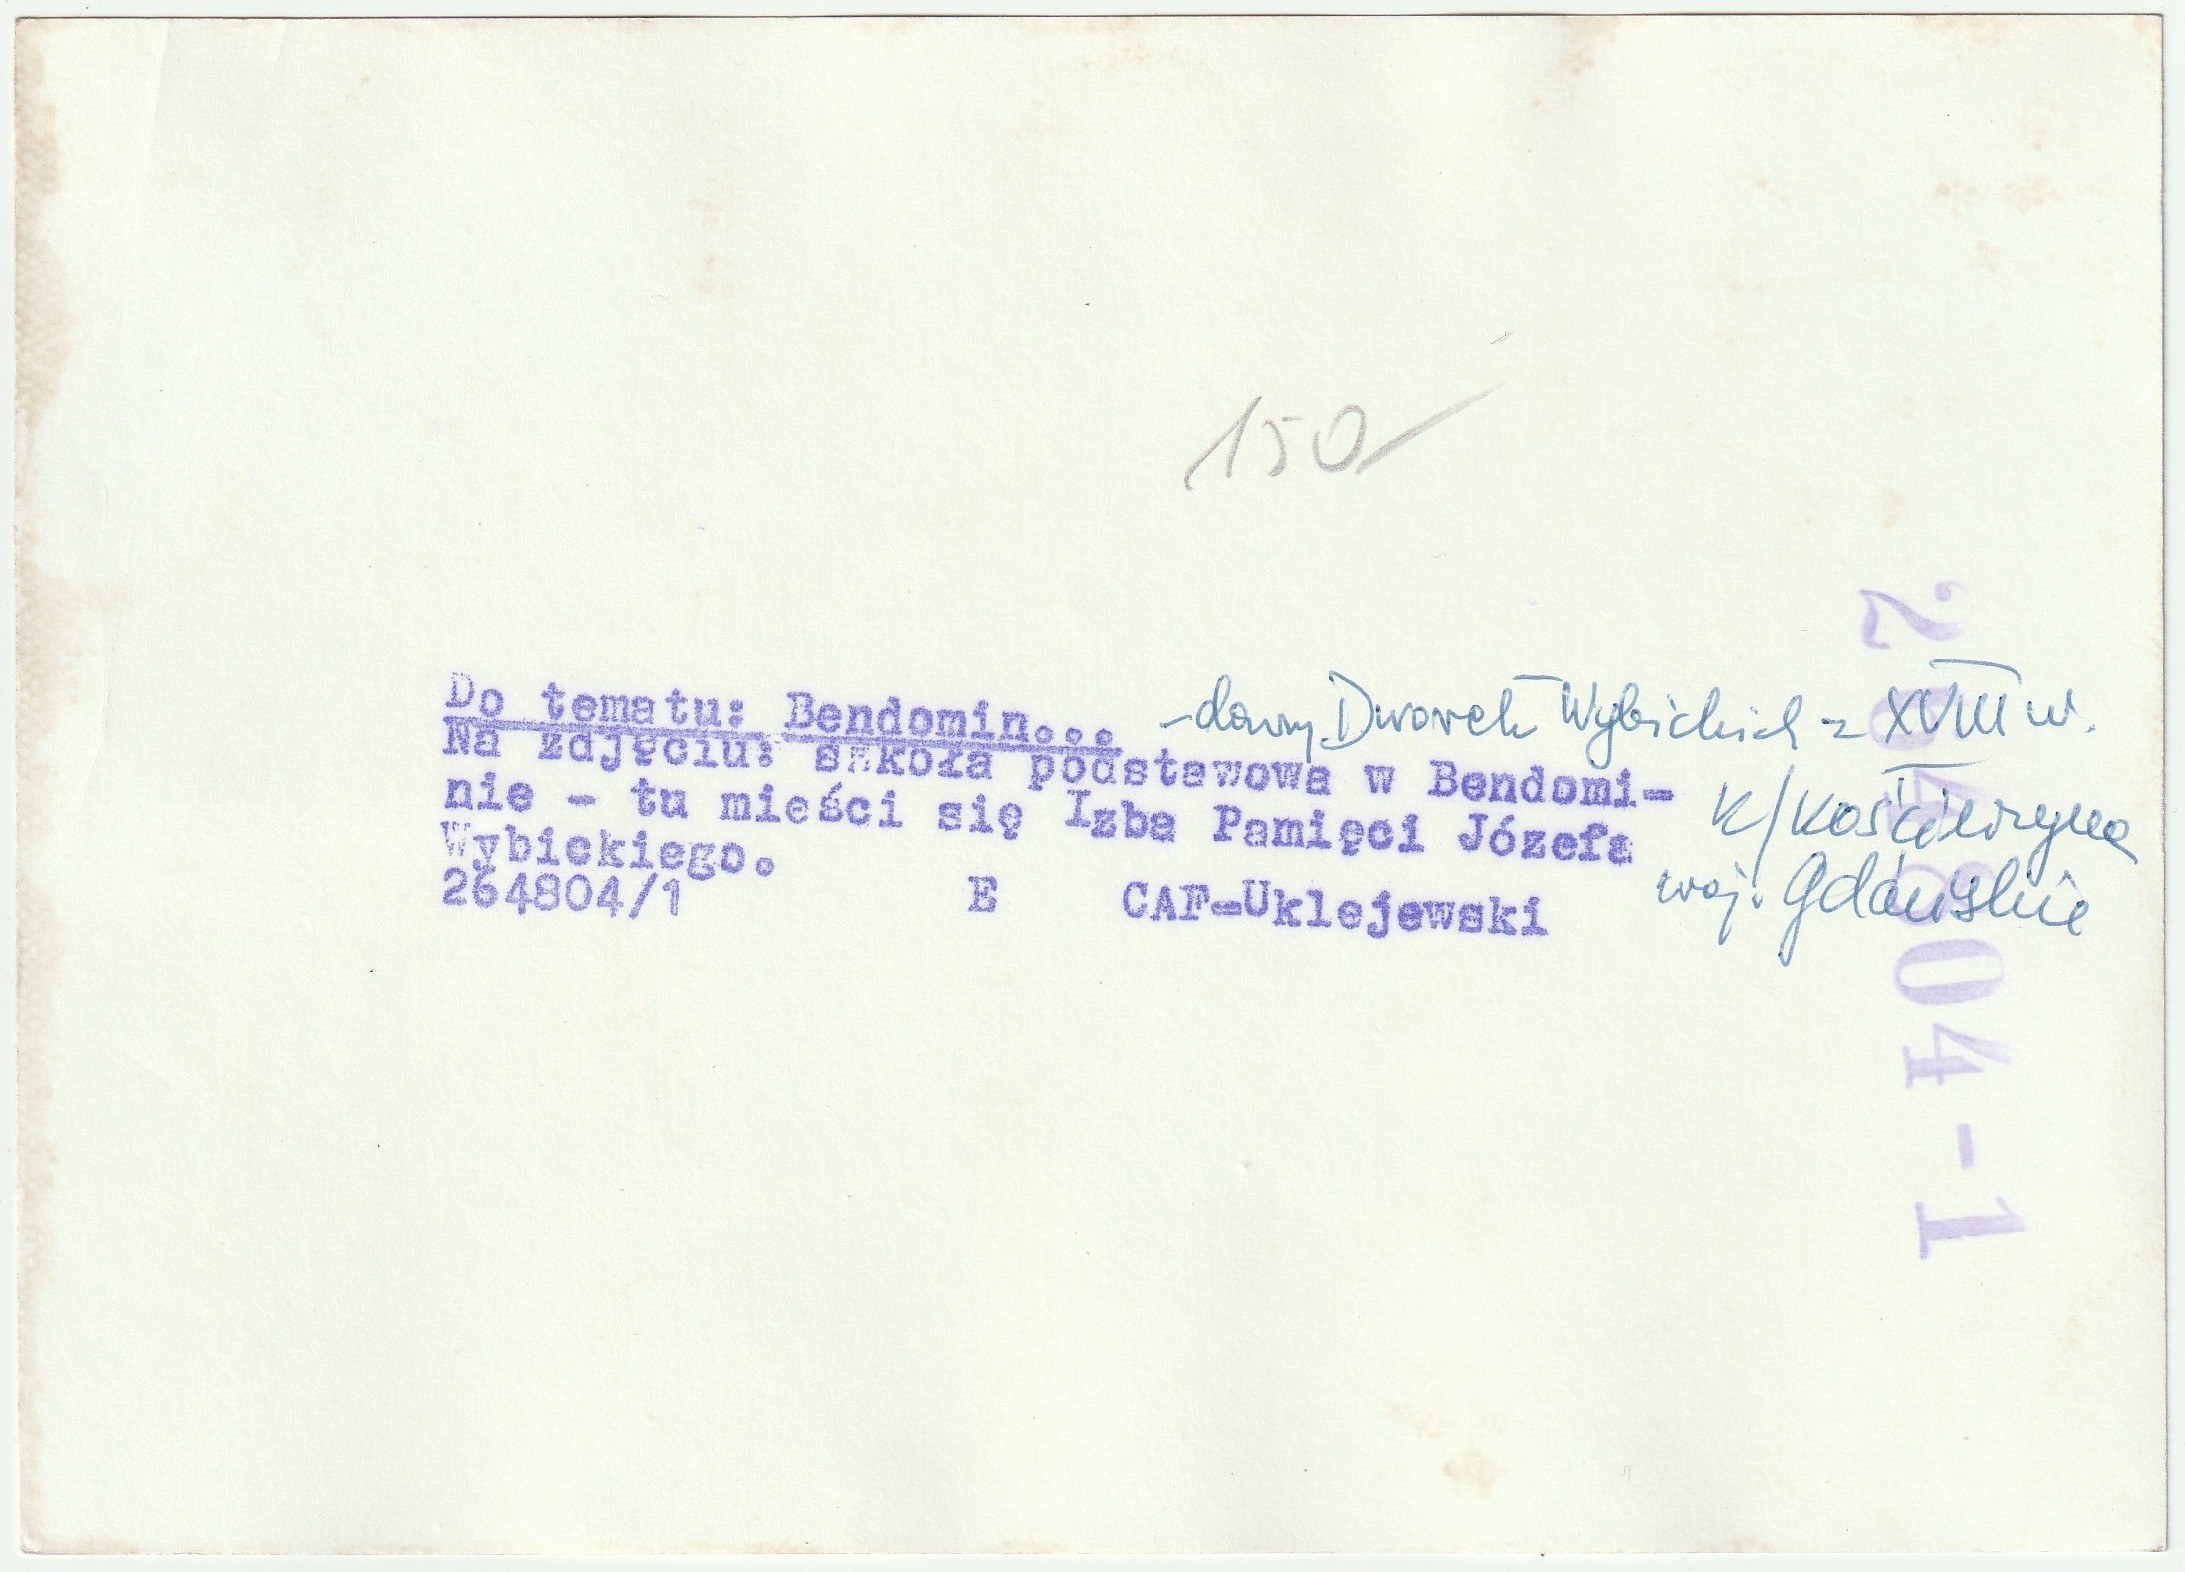 150
Do tematu: Bendomin...
Na zdjęciu: szkoła podstawowa w Bendomi-
nie - tu mieści się Izba Pamięci Józefa
Wybickiego.
264804/1 E CAF-Uklejewski
- dawny Dworek Wybickich z XVIII w.
K/Kościerzyna
woj. Gdańskie
264804-1